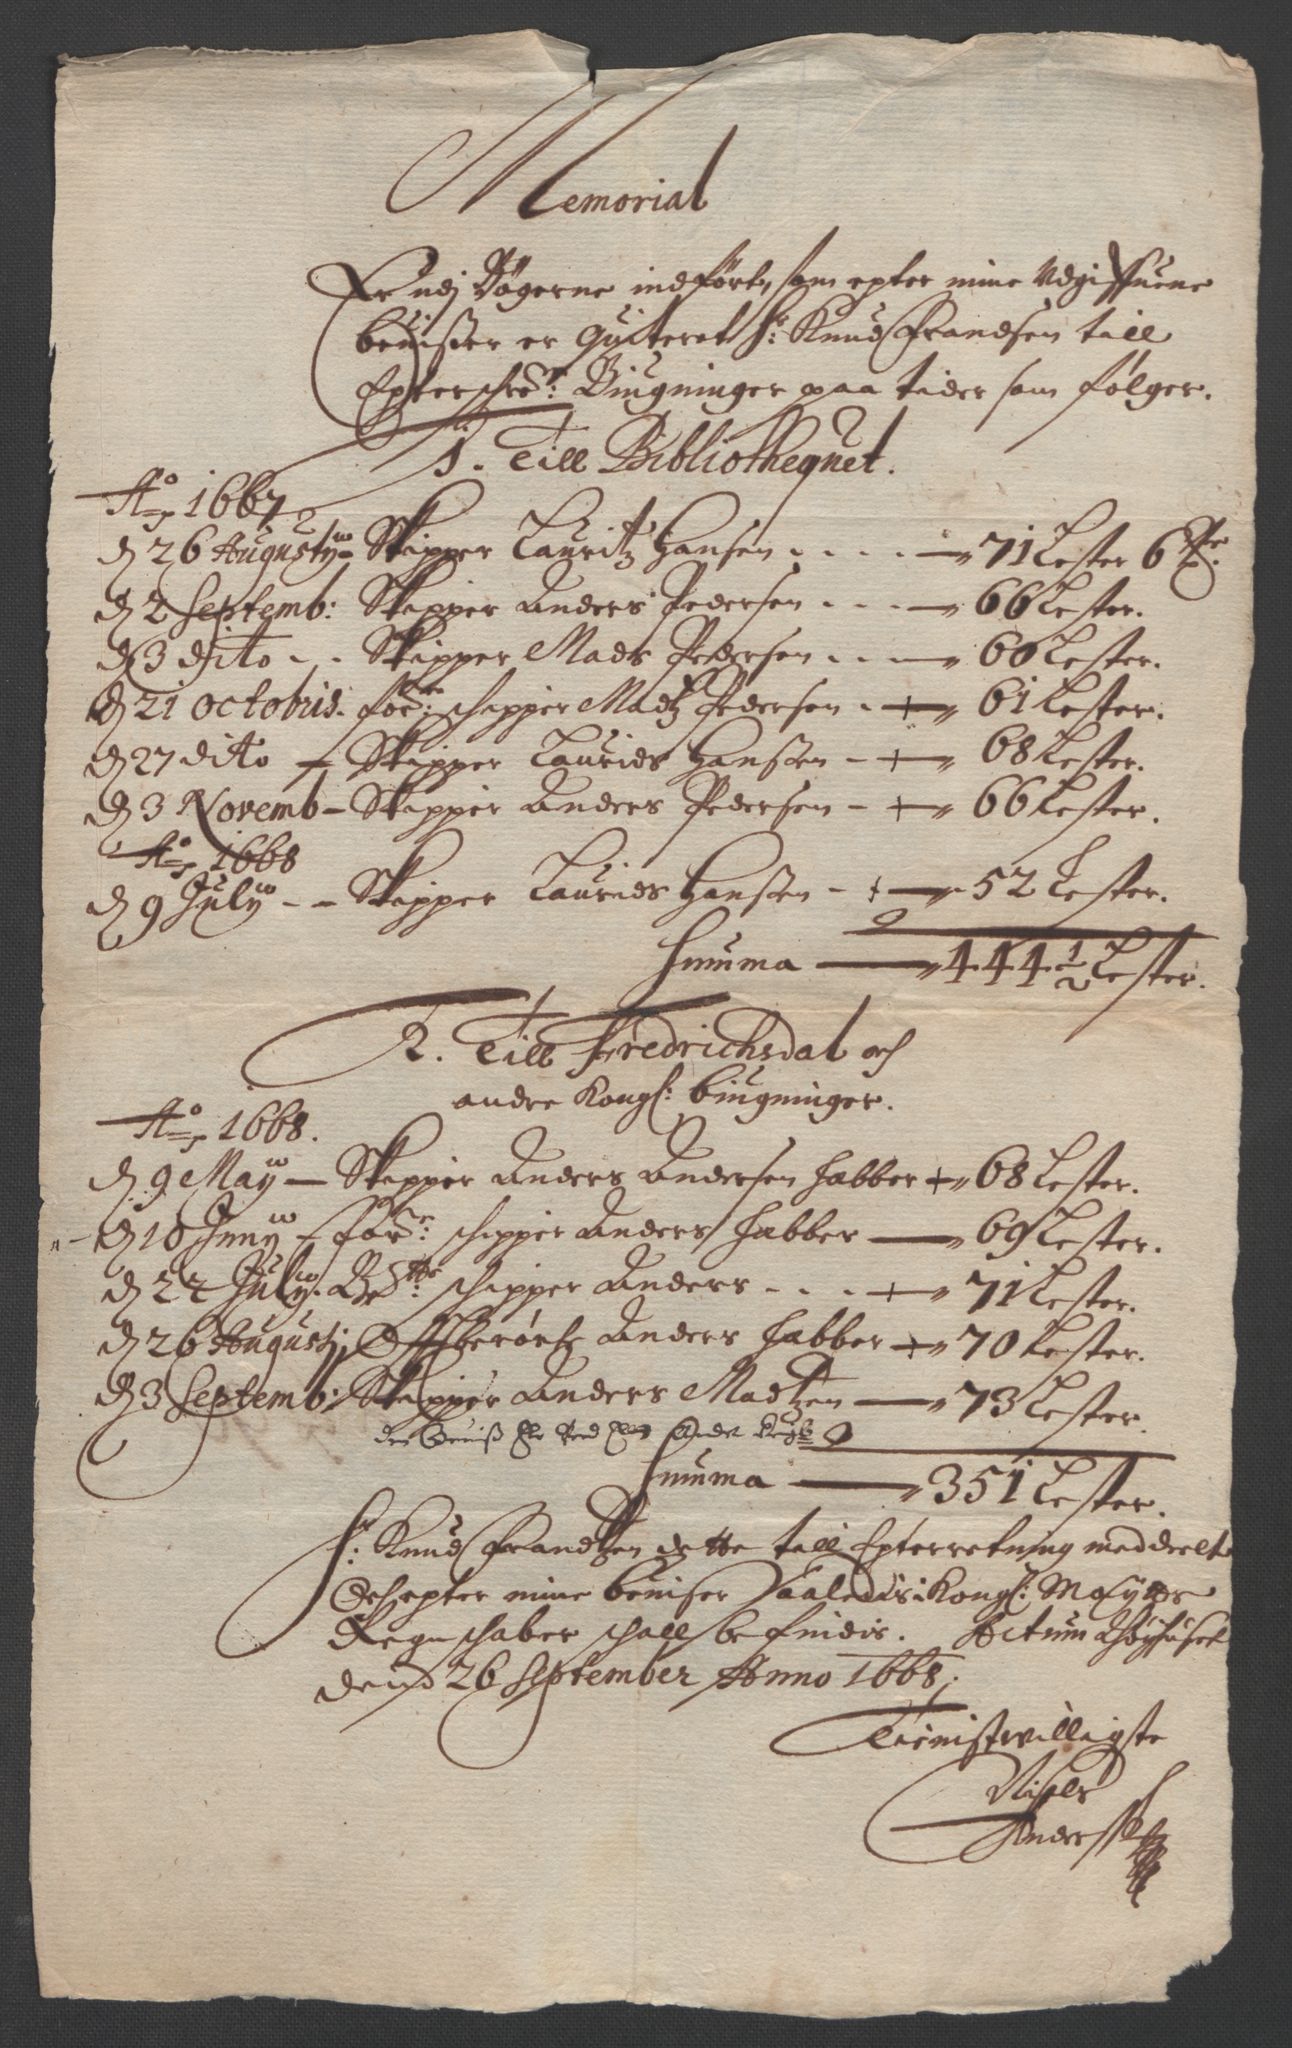 Memorial
Er udj Bögerne indført, som epter mine Udgiffuene
beuisser er Quiteret Hr: Knud Frandsen till
Epterschrefne: Biugninger paa tider som følger.
1. Till Bibliothequet.
Ao 1667
d 26 Augusty Skipper Lauritz Hansen . . . . 71 Lester 6 Tr.
d 2 Septemb: Skipper Anders Pedersen . . . 66 Lester.
d 3 dito . . Skipper Mads Pedersen . . . 60 Lester.
d 21 Octobris. for: schipper Madtz Pedersen . 61 Lester.
d 27 dito Skipper Laurids Hanssen - 68 Lester.
d 3 Novemb - Skipper Anders Pedersen - 66 Lester.
Ao 1668
d 9 July - - Skipper Laurids Hanssen - 52 Lester.
Summa 444 1/2 Lester.
2. Till Fredrichsdal och
andre Kongl: biugninger.
Ao 1668.
d 9 May - Skipper Anders Andersen Fabber 68 Lester.
d 18 Juny - for: schipper Anders Fabber 69 Lester.
d 22 July. Bte: schipper Anders . . . 71 Lester.
d 26 Augustj Offtberørte Anders Fabber 70 Lester.
d 3 Septemb: Skipper Anders Madtzen 73 Lester.
den Beuiss
Summa 351 Lester.
Hr: Knud Frandtzen dette till Epterretning meddeelt
des epter mine beuiser saaledis i Kongl: Maytts
Regnschaber schall befindis. Actum
dend 26 September Anno 1668.
Tienistvilligste
Niels
Anderss